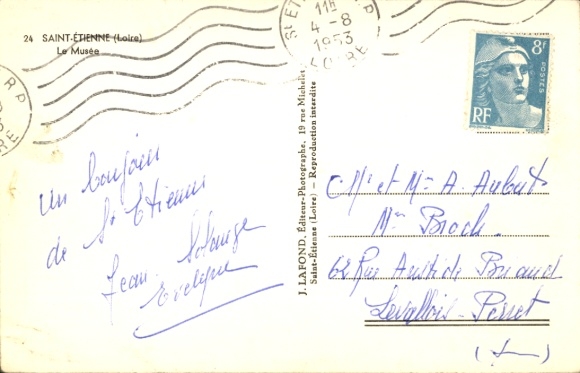 24 SAINT-ÉTIENNE (Loire)
Le Musée
un bonjour
de St Etienne
Jean. Solange
Evelyne
J. LAFOND, Éditeur-Photographe, 19 rue Michelet
Saint-Étienne (Loire) — Reproduction interdite
11H
4-8
1953
LOIRE
8F
POSTES
RF
et Mme A. Aubert
Mme Broch.
62 Rue Aristide Briand
Levallois-Perret